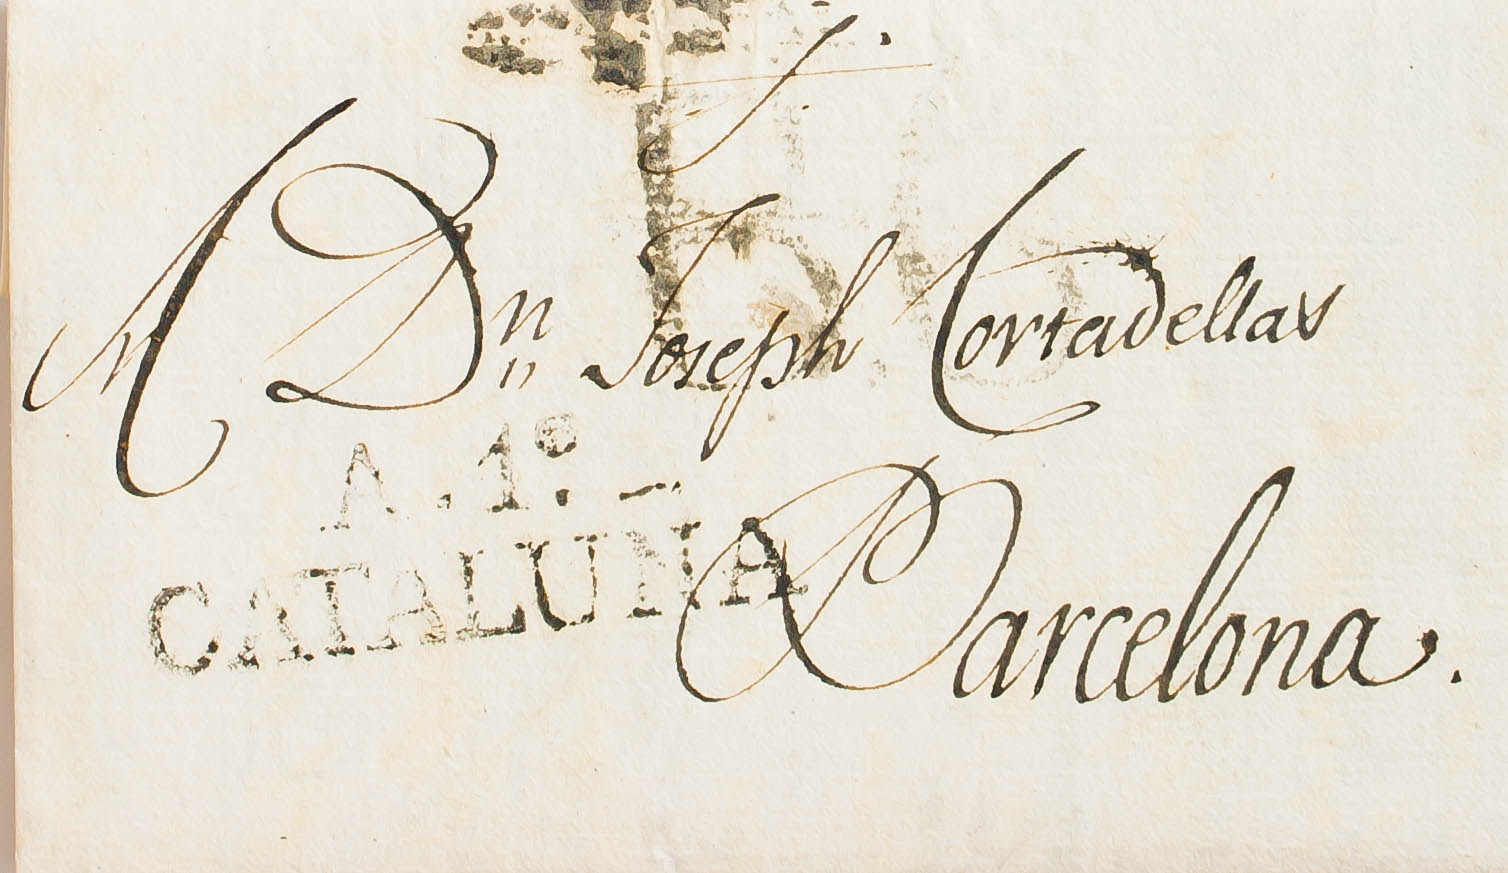 A Dn Joseph Cortadellas
A.1º.
CATALUÑA
Barcelona.